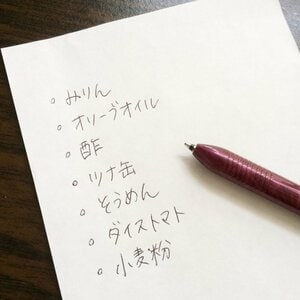 。みりん
。オリーブオイル
。酢
。ツナ缶
。そうめん
。ダイストマト
。小麦粉